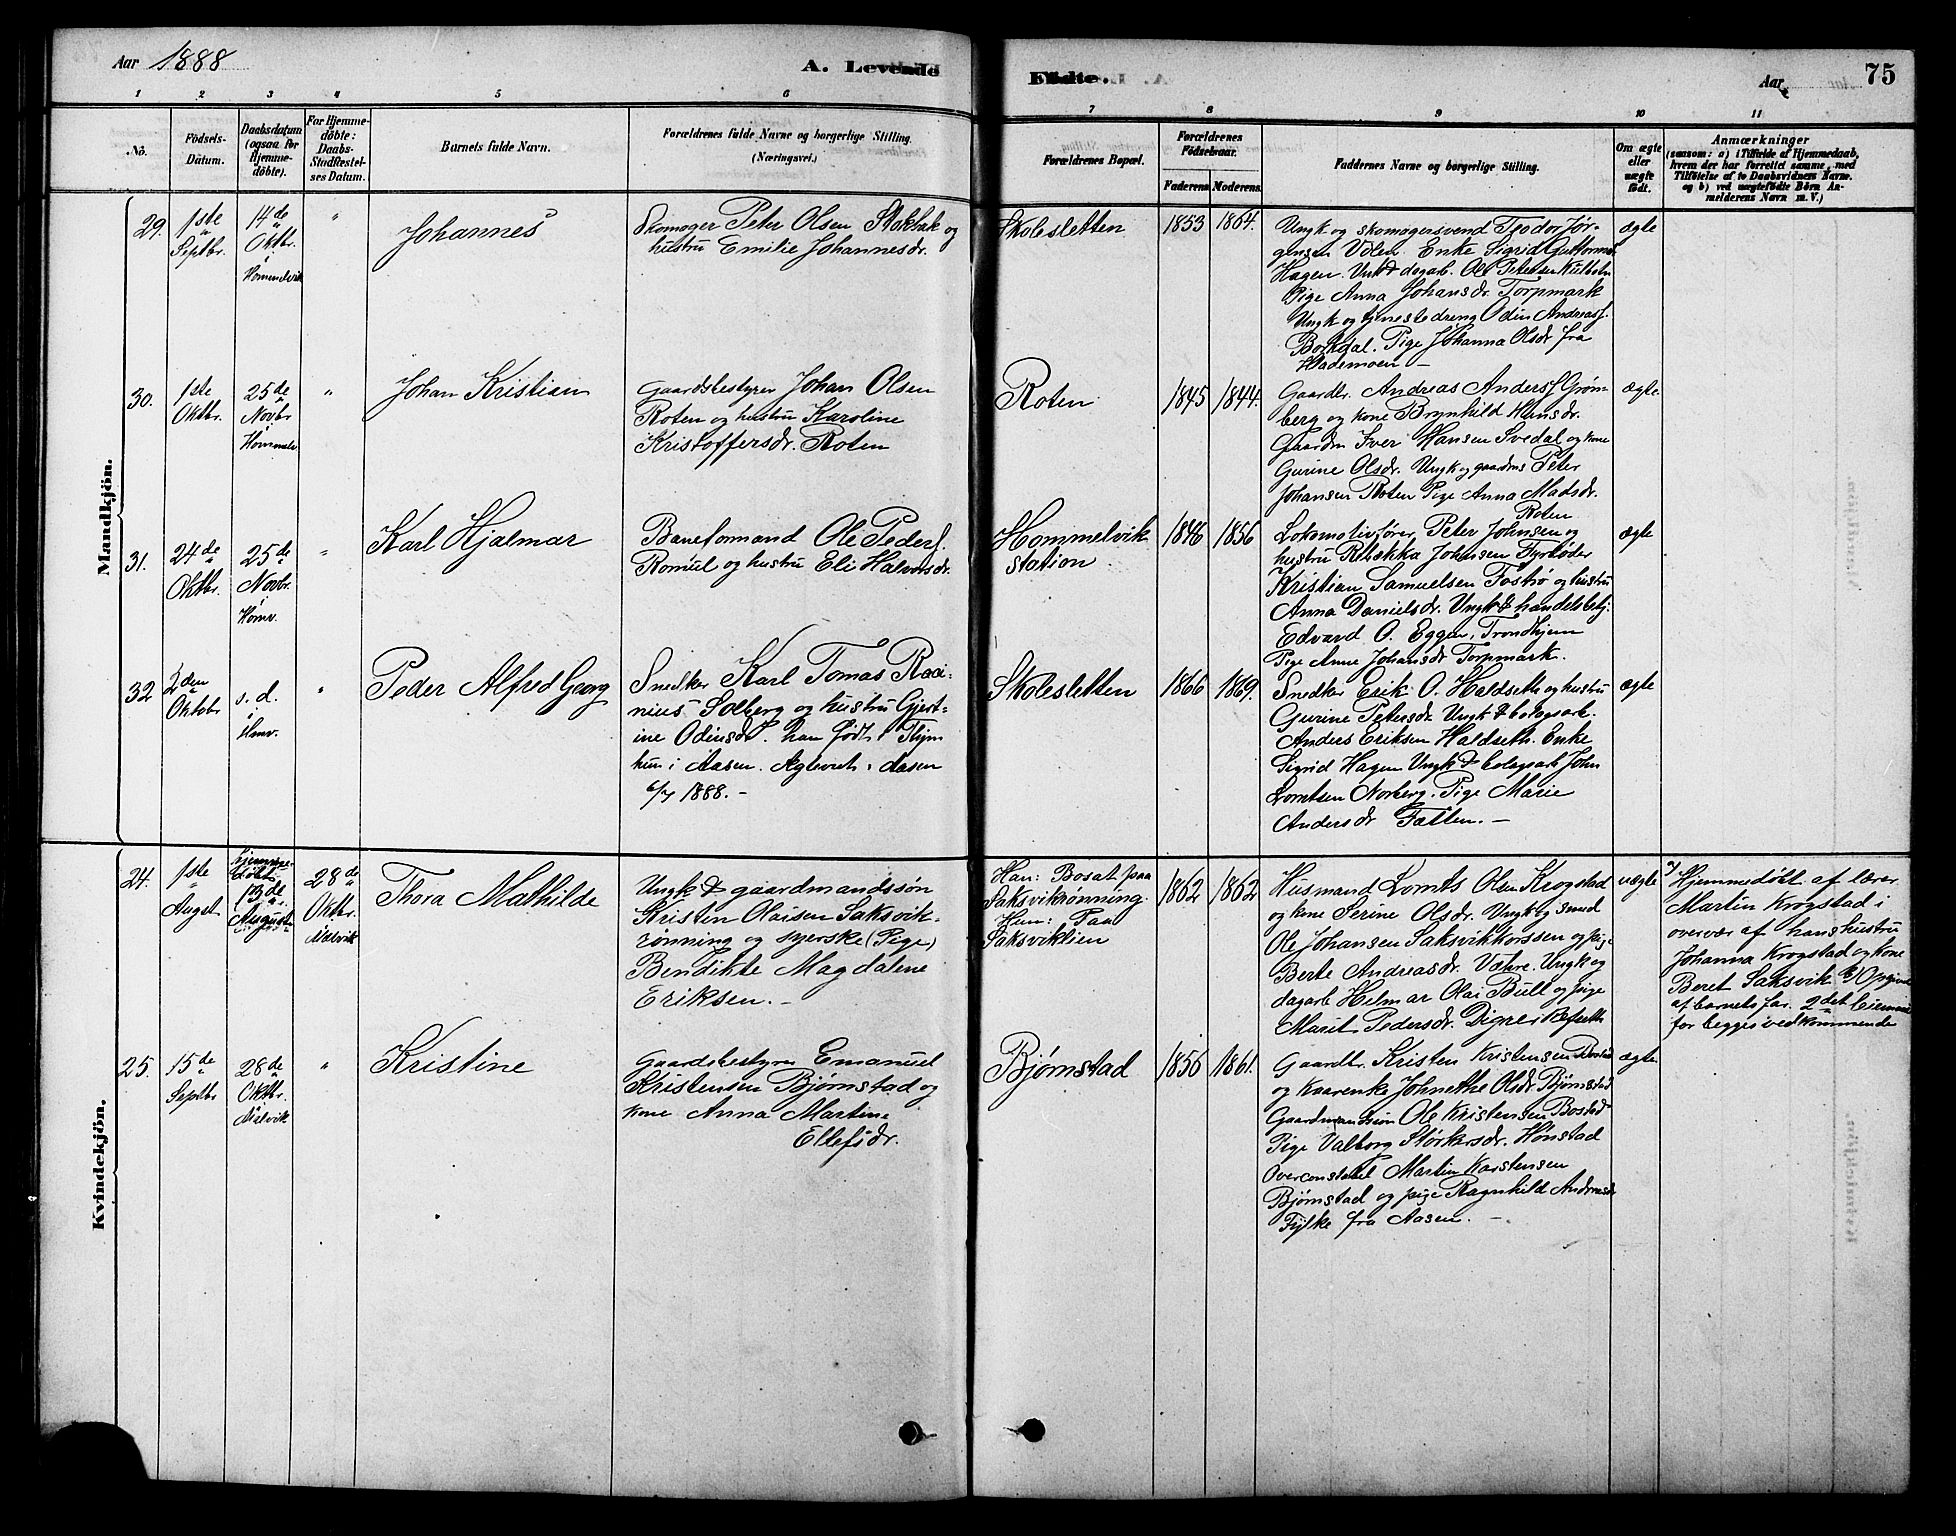 Aar 1888
A. Levende
Födte.
Aar
75
1 2 3 4 5 6 7 8 9 10 11
No.
Födsels-
Datum.
Daabsdatum
(ogsaa for
Hjemme-
döbte).
For Hjemme-
döbte:
Daabs-
Stadfæstel-
ses Datum.
Barnets fulde Navn.
Forældrenes fulde Navne og borgerlige Stilling.
(Næringsvei.)
Forældrenes Bopæl.
Forældrenes
Födselsaar.
Faderens Moderens
Faddernes Navne og borgerlige Stilling.
Om ægte
eller
uægte
födt.
Anmærkninger
(saasom: a) i Tilfælde af Hjemmedaab,
hvem der har forrettet samme, med
Tilföielse af to Daabsvidners Navne.
og b) ved uægtefödte Börn An-
melderens Navn m.V.)
Mandkjön.
29.
1ste
Septbr.
14de
Oktbr.
Hommelvik
"
Johannes
Skomager Peter Olsen Stokbak og
hustru Emilie Johannesdr.
Skolesletten
1853
1864.
Ungk og skomagersvend Teodor Jør-
gensen Volen. Enke Sigrid Guttormsd
Hagen. Ungk & dagarb. Ole Petersen
Pige Anna Johansdr Torpmark
Ungk og tjenestedreng Odin Andreasf.
Borkdal. Pige Johanna Olsdr fra
Hademoen –
ægte
30.
1ste
Oktbr.
25de
Novbr
Hommelv
"
Johan Kristian
Gaardbestyrer Johan Olsen
Roten og hustru Karoline
Kristoffersdr. Roten
Roten
1845
1844.
Gaardbr. Andreas Andersf Grøn-
berg og kone Brynhild Hansdr.
Gaardm Iver Hansen Svedal og kone
Gurine Olsdr. Ungk og gaardms Peter
Johansen Roten Pige Anna Madsdr.
Roten
ægte
31.
24de
Oktbr.
25de
Novbr.
Homv.
"
Karl Hjalmar
Baneformand Ole Pedersf.
Romul og hustru Eli Halvorsdr.
Hommelvik
station
1846
1856
Lokomotivfører Peter Johnsen og
hustru Rebekka Johnsen Fyrbøder
Kristian Samuelsen Fostrø og hustru
Anna Danielsdr. Ungk & handelsbetj.
Edvard O. Eggen, Trondhjem
Pige Anne Johansdr Torpmark.
ægte
32
2den
Oktbr
s. d.
Hmv.
"
Peder Alfred Georg
Snedker Karl Tomas Raai-
nius Solberg og hustru Gjert-
ine Odinsdr. han født i
i Aasen. Ægteviet i Aasen
6/7 1888. –
Skolesletten
1866
1869.
Snedker Erik O. Haldseth og hustru
Gurine Petersdr Ungk &
Anders Eriksen Haldseth. Enke
Sigrid Hagen Ungk & John
Lorntsen Norberg. Pige Marie
Andersdr Fatten. –
ægte
Kvindekjön.
24.
1ste
Augst
hjemme-
døbt
13de
August
28de
Oktbr.
Malvik
Thora Mathilde
Ungk & gaardmandssøn
Kristen Olaisen Saksvik-
rønning og syerske (Pige)
Bendikte Magdalene
Eriksen. –
Han: Bosat paa
Saksvikrønning.
Hun: Paa
Saksviklien
1862
1862
Husmand Lornts Olsen Krogstad
og kone Serine Olsdr. Ungk og smed
Ole Johansen Saksvikkorssen og pige
Berte Andreasdr. Vætre. Ungk og
dagarb Helmar Olai Bull og pige
Marit Pedersdr.
uægte
a) Hjemmedøbt af lærer
Martin Krogstad i
overvær af hans hustru
Johanna Krogstad og kone
Beret Saksvik b) Opgivet
af barnets far. 2det Leiermaal
for begges vedkommende
25.
15de
Septbr
28de
Oktbr.
Malvik
"
Kristine
Gaardsbestyrer Emanuel
Kristensen Bjørnstad og
kone Anna Martine
Ellefsdr.
Bjørnstad
1856
1861.
Gaardbr. Kristen Kristensen Bostad
og kaarenke Johnethe Olsdr Bjørnstad
Gaardmandssøn Ole Kristensen Bostad
Pige Valborg Størkersdr. Hønstad
Overconstabel Martin Karstensen
Bjørnstad og pige Ragnhild Andreasdr
Fylke fra Aasen. –
ægte